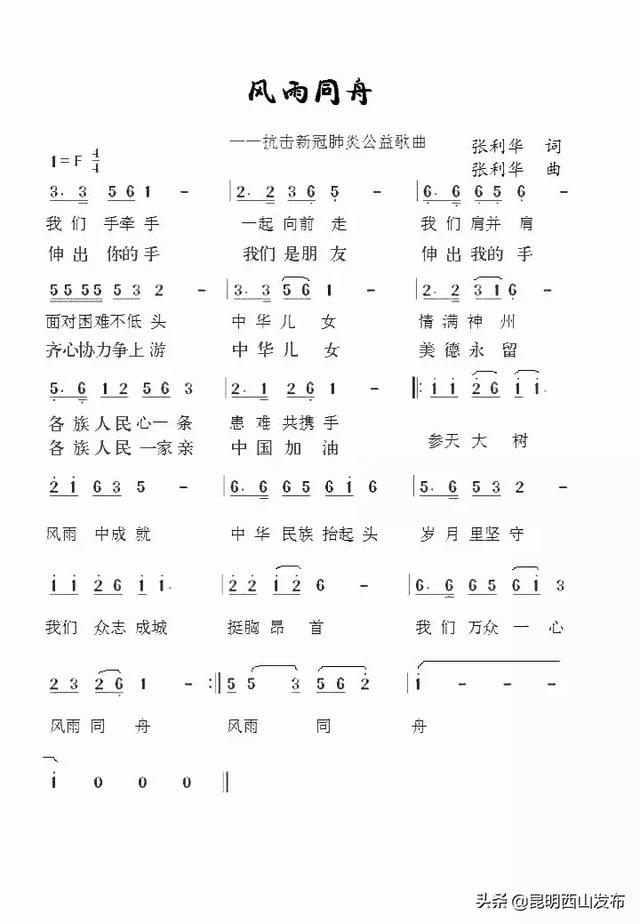 风雨同舟
——抗击新冠肺炎公益歌曲
1=F 4/4
张利华 词
张利华 曲
3. 3 5 6 1 - | 2. 2 3 6 5 - | 6. 6 6 5 6 -
我们 手牵手 一起 向前 走 我们 肩并 肩
伸出 你的手 我们 是朋 友 伸出 我的 手
5 5 5 5 5 3 2 - | 3. 3 5 6 1 - | 2. 2 3 1 6 -
面对困难不低头 中华儿女 情满神州
齐心协力争上游 中华儿女 美德永留
5. 6 1 2 5 6 3 | 2. 1 2 6 1 - ‖: i i 2 6 i i.
各族人民心一条 患难共携手 参天大树
各族人民一家亲 中国加油
2 i 6 3 5 - | 6. 6 5 6 i 6 | 5. 6 5 3 2 -
风雨 中成就 中华 民族 抬起头 岁月里坚守
i i 2 6 i i. | 2 2 i 2 6 - | 6. 6 5 6 6 i 3
我们 众志成城 挺胸昂首 我们 万众一心
2 3 2 6 1 - :‖ 5 5 3 5 6 2 | i - - -
风雨同舟 风雨 同 舟
i 0 0 0 ‖
头条 @昆明西山发布